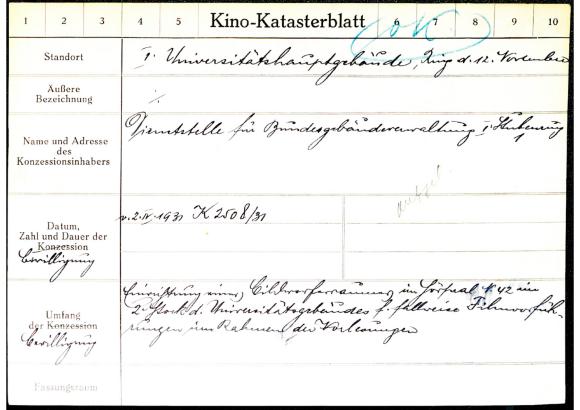 1 2 3 4 5 Kino-Katasterblatt 6 7 8 9 10
OK
Standort
I. Universitätshauptgebäude, Ring d. 12. November
Äußere
Bezeichnung
./.
Name und Adresse
des
Konzessionsinhabers
Dienststelle für Bundesgebäudeverwaltung I. Stubenring
Datum,
Zahl und Dauer der
Konzession
Bewilligung
v. 2. IV. 1931 K 2508/31
Umfang
der Konzession
Bewilligung
Einrichtung eines Bildwerferraumes im Hörsaal N. 42 im
2. Stock d. Universitätsgebäudes f. fallweise Filmvorfüh-
rungen im Rahmen der Vorlesungen
Fassungsraum